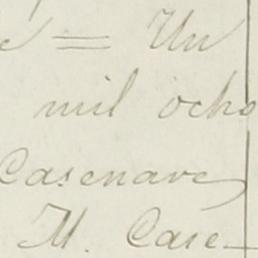 = Un
mil ocho
Casenave
M. Case-